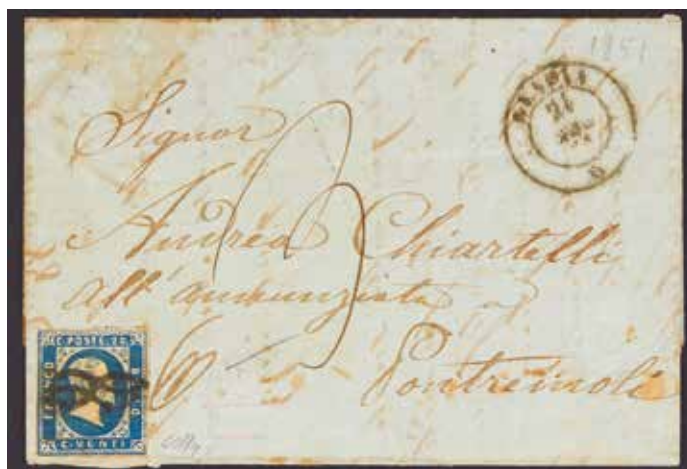 1851
24
Signor
Andrea Chiartelli
all'annunziata
Pontremoli
C. POSTE. 20
FRANCO
C. VENTI